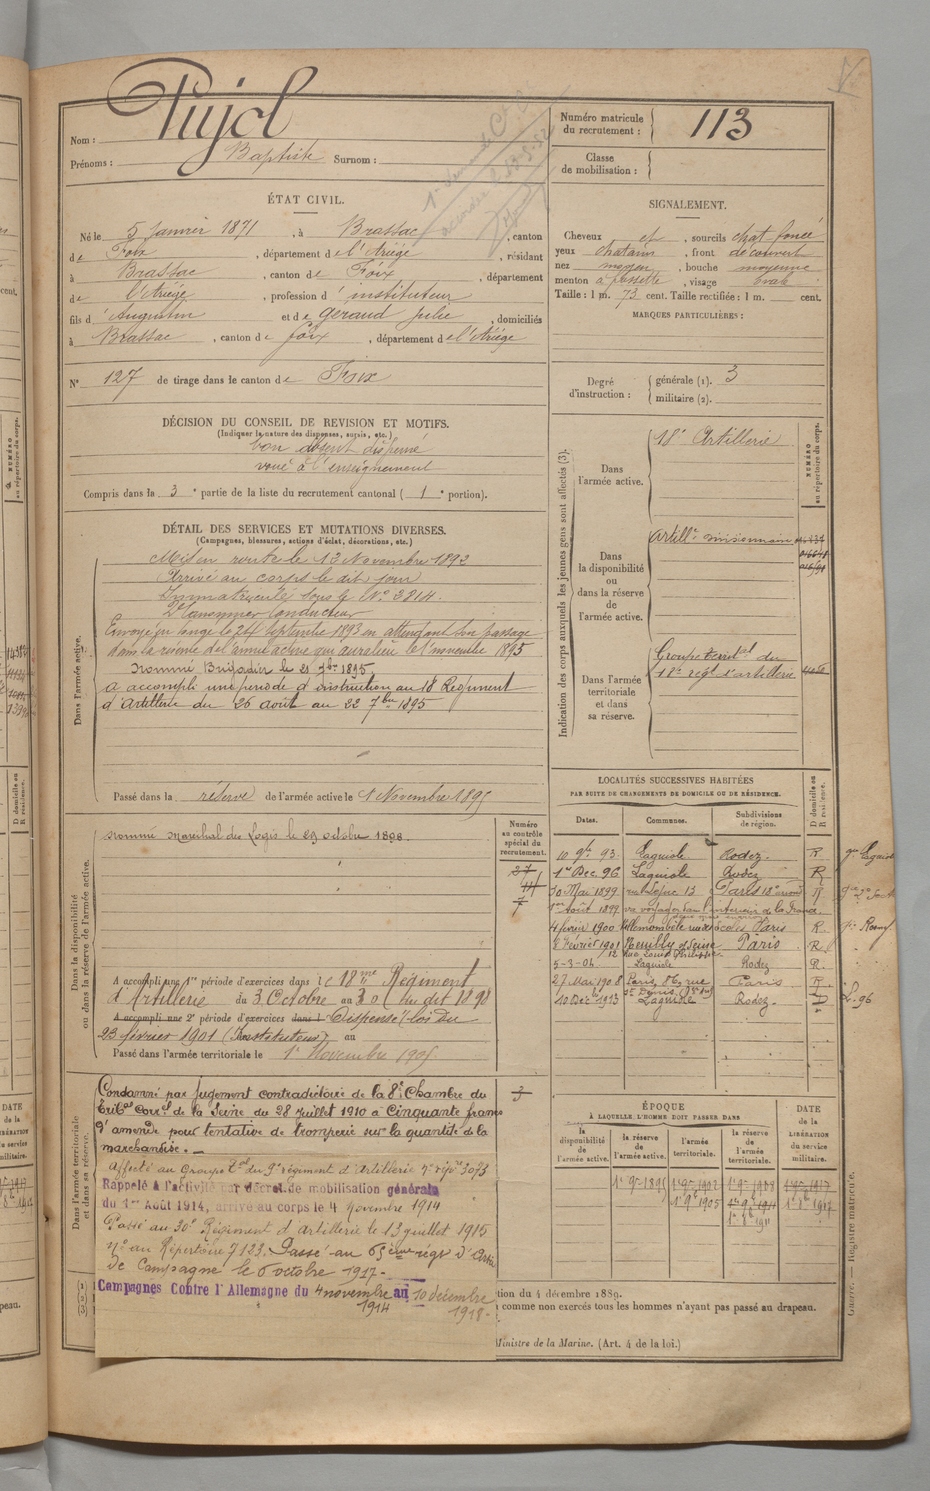 Nom : Pujol
Prénoms : Baptiste Surnom :
Numéro matricule
du recrutement : 113
Classe
de mobilisation :
ÉTAT CIVIL.
Né le 5 Janvier 1871, à Brassac, canton
de Foix, département de l'Ariège, résidant
à Brassac, canton de Foix, département
de l'Ariège, profession d'instituteur
fils d'Augustin et de Geraud Julie, domiciliés
à Brassac, canton de foix, département de l'Ariège
N° 127 de tirage dans le canton de Foix
SIGNALEMENT.
Cheveux et, sourcils chat-foncé
yeux chatains, front découvert
nez moyen, bouche moyenne
menton à fossette, visage ovale
Taille : 1 m. 73 cent. Taille rectifiée : 1 m. cent.
MARQUES PARTICULIÈRES :
Degré
d'instruction :
générale (1). 3
militaire (2).
DÉCISION DU CONSEIL DE REVISION ET MOTIFS.
(Indiquer la nature des dispenses, sursis, etc.)
bon absent dispensé
voué à l'enseignement
Compris dans la 3e partie de la liste du recrutement cantonal (1e portion).
DÉTAIL DES SERVICES ET MUTATIONS DIVERSES.
(Campagnes, blessures, actions d'éclat, décorations, etc.)
Dans l'armée active.
Mis en route le 13 Novembre 1892
Arrivé au corps le dit jour
Immatriculé sous le N° 3814.
2e Canonnier Conducteur
Envoyé en congé le 24 Septembre 1893 en attendant son passage
dans la réserve de l'armée active qui aura lieu le 1er novembre 1895
Nommé Brigadier le 21 7bre 1895
A accompli une période d'instruction au 18 Régiment
d'Artillerie du 26 août au 22 7bre 1895
Passé dans la réserve de l'armée active le 1 Novembre 1895
Indication des corps auxquels les jeunes gens sont affectés (3).
NUMÉRO
au répertoire du corps.
Dans
l'armée active.
18e Artillerie
Dans
la disponibilité
ou
dans la réserve
de
l'armée active.
Artillie divisionnaire
Dans l'armée
territoriale
et dans
sa réserve.
Groupe territal du
18e régt d'artillerie
Dans la disponibilité
ou dans la réserve de l'armée active.
Nommé Marechal des Logis le 29 octobre 1898.
Numéro
au contrôle
spécial du
recrutement.
A accompli une 1re période d'exercices dans le 18me Régiment
d'Artillerie du 3 Octobre au 30 du dit 1898
A accompli une 2e période d'exercices dans l Dispensé loi du
23 février 1901 (Instituteur) au
Passé dans l'armée territoriale le 1er Novembre 1905
LOCALITÉS SUCCESSIVES HABITÉES
PAR SUITE DE CHANGEMENTS DE DOMICILE OU DE RÉSIDENCE.
Dates. Communes. Subdivisions
de région. D domicile ou
R résidence.
10 9bre 93. Laguiole Rodez. R
1er Dec. 96 Laguiole Rodez R
30 Mai 1899 rue Lepic 13 Paris 18e arrond R
1er Août 1899 va voyager dans l'intérieur de la France.
4 février 1900 Villemomble Paris R.
8 février 1901 Neuilly s/ Seine Paris R.
5-3-04 Laguiole Rodez R.
27 Mai 1908 Paris, 86, rue Paris R.
St Denis
10 Dec. 1913 Laguiole Rodez. D
Dans l'armée territoriale
et dans sa réserve.
Condamné par jugement contradictoire de la 8e Chambre du
Tribal correl de la Seine du 28 Juillet 1910 à Cinquante francs
d'amende pour tentative de tromperie sur la quantité de la
marchandise. —
Affecté au Groupe tal du 9e régiment d'Artillerie n° répre 3073
Rappelé à l'activité par décret de mobilisation générale
du 1er Août 1914, arrivé au corps le 4 novembre 1914
Passé au 30e Régiment d'Artillerie le 13 juillet 1915
N° au Répertoire 7123. Passé au 65ème régt d'Artie
de Campagne le 6 octobre 1917-
Campagnes Contre l'Allemagne du 4 novembre 1914 au 10 décembre 1918-
ÉPOQUE
À LAQUELLE L'HOMME DOIT PASSER DANS
la
disponibilité
de
l'armée active.
la réserve
de
l'armée active.
l'armée
territoriale.
la réserve
de
l'armée
territoriale.
DATE
de la
LIBÉRATION
du service
militaire.
1er 9re 1895 1er 9re 1902 1er 9re 1908 1er 9re 1917
1er 9re 1905 1er 9re 1911 1er 8bre 1917
1er 8bre 1911
tion du 4 décembre 1889.
comme non exercés tous les hommes n'ayant pas passé au drapeau.
Ministre de la Marine. (Art. 4 de la loi.)
Guerre. — Registre matricule.